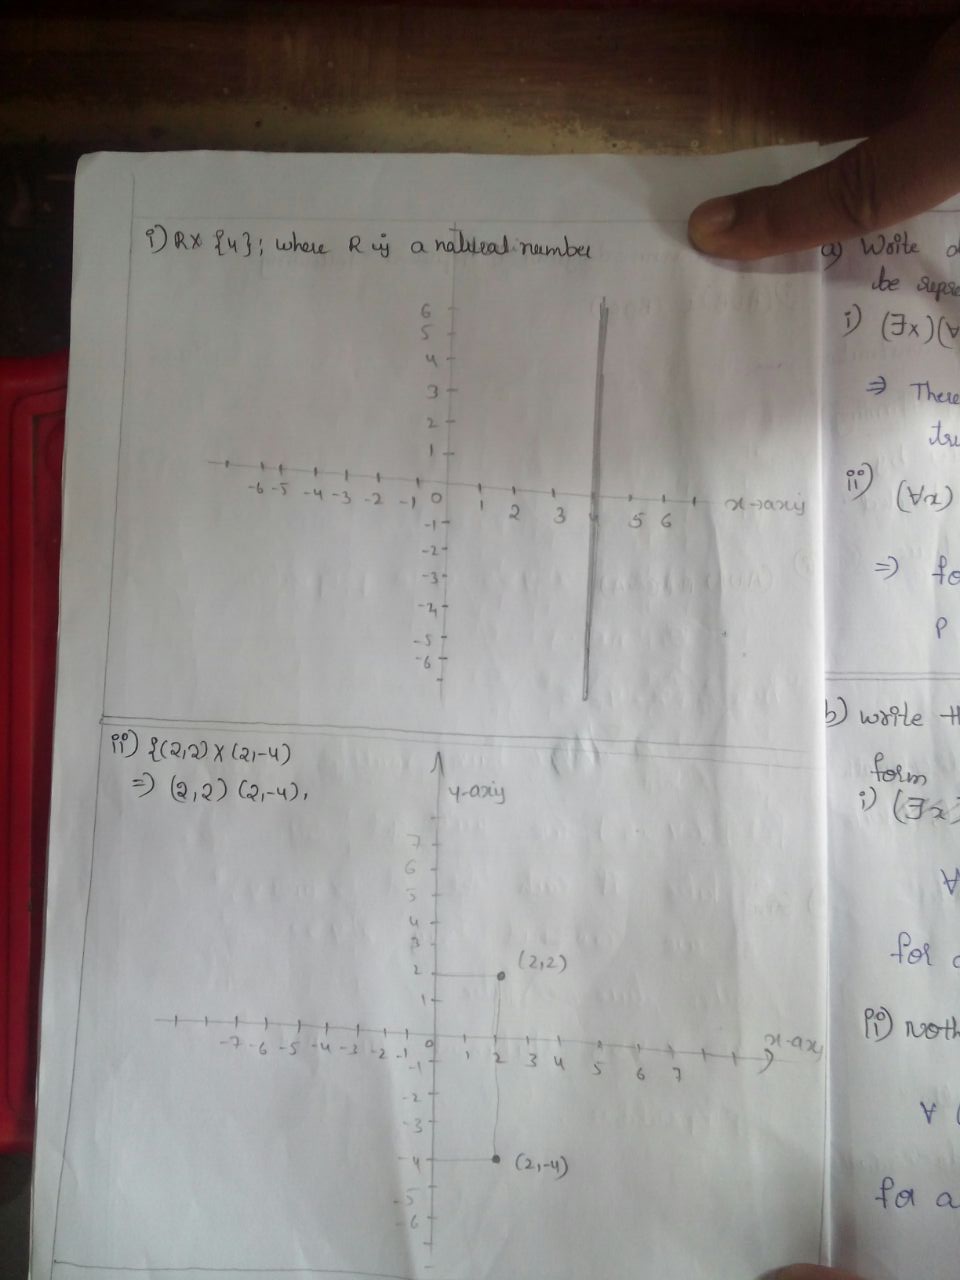 i) R× {4}; where R is a natural number
6
5
4
3
2
1
-6 -5 -4 -3 -2 -1 0 1 2 3 4 5 6 x-axis
-1
-2
-3
-4
-5
-6
ii) {(2,2) × (2,-4)
⇒ (2,2) (2,-4),
y-axis
7
6
5
4
3
2 (2,2)
1
-7 -6 -5 -4 -3 -2 -1 0 1 2 3 4 5 6 7
-1
-2
-3
-4 (2,-4)
-5
-6
a) Write
be
i) (∃x)(∀
⇒ There
ii) (∀x)
⇒ fo
P
b) write th
form
i) (∃x)
∀
for a
ii) noth
∀ (
for a